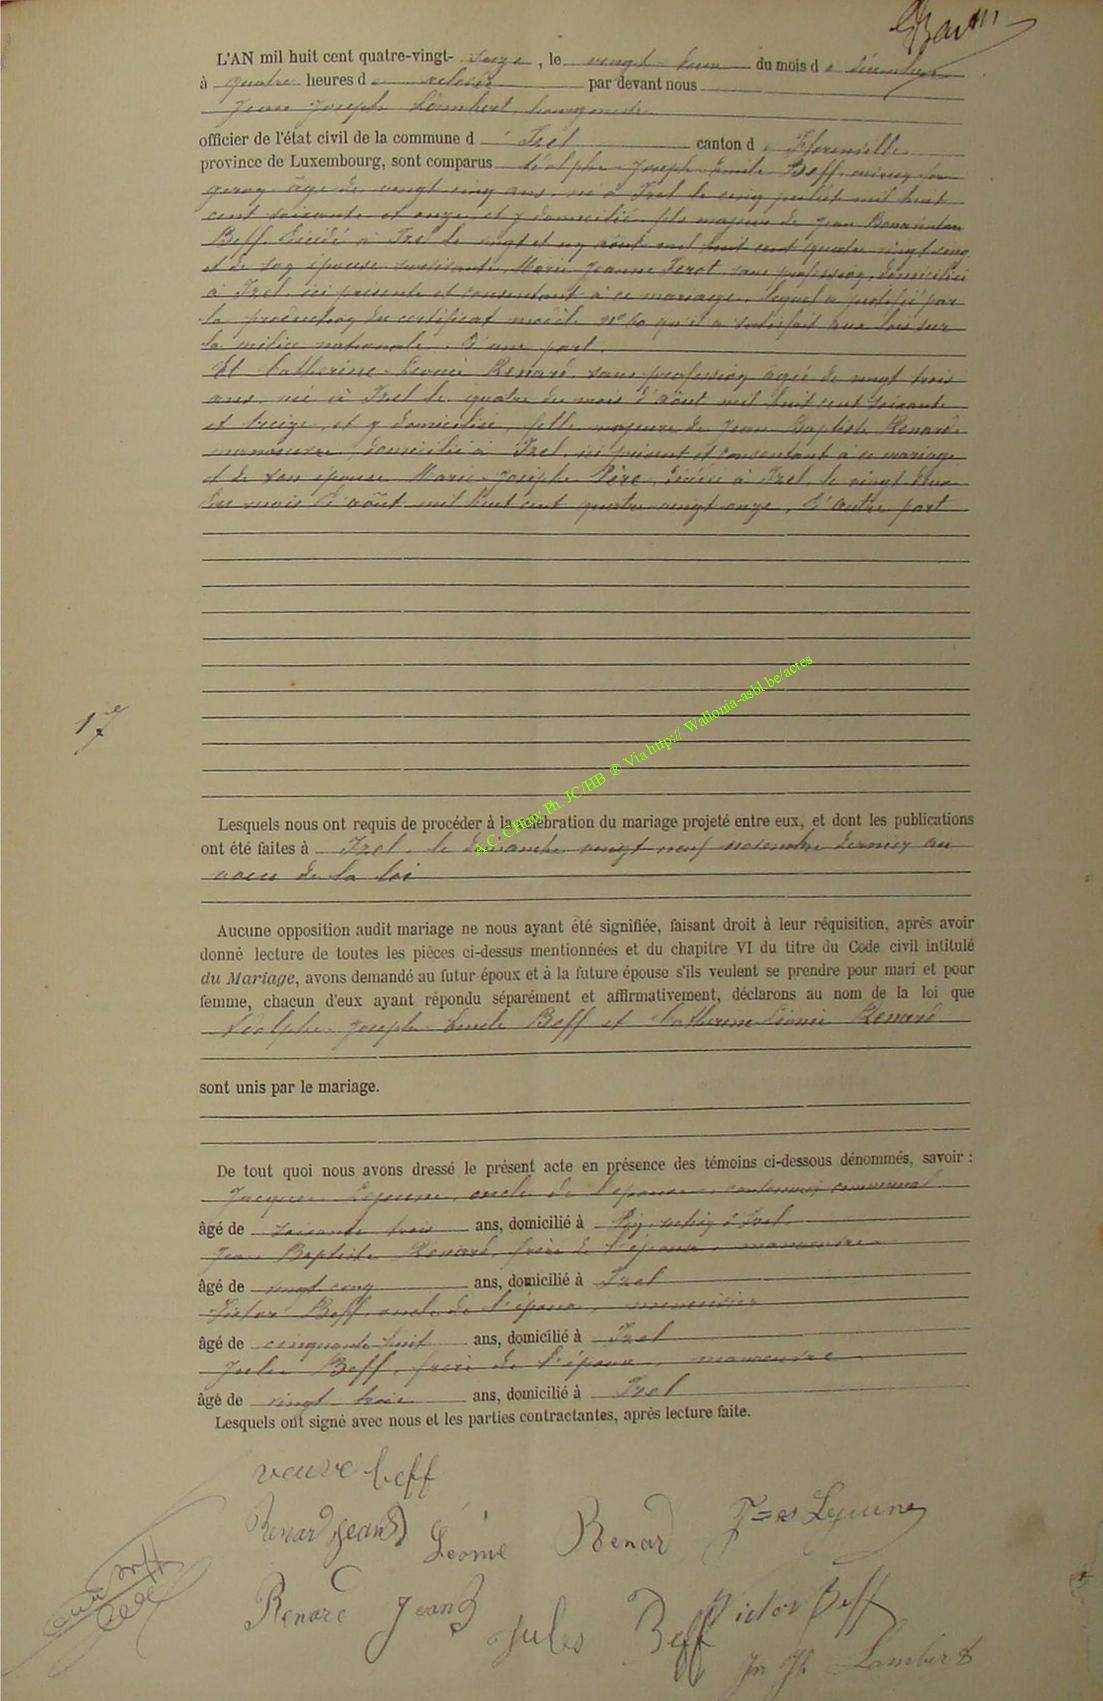 L'AN mil huit cent quatre-vingt- seize , le vingt deux du mois de décembre
à quatre heures de relevée par devant nous
Jean Joseph Lambert bourgmestre
officier de l'état civil de la commune d' Izel canton de Florenville
province de Luxembourg, sont comparus Adolphe Joseph Emile Beff
âgé de vingt cinq ans, né à Izel le cinq juillet mil huit
cent soixante et onze et y domicilié fils majeur de Jean
Beff, décédé à Izel le vingt et un août mil huit cent quatre vingt cinq
et de son épouse survivante Marie Jeanne sans profession, domiciliée
à Izel, ici présente et consentant à ce mariage, lequel a justifié par
la production du certificat modèle qu'il a satisfait aux lois sur
la milice nationale. D'une part.
Et Catherine Léonie Renard, sans profession âgée de vingt trois
ans, née à Izel le quatre du mois d'août mil huit cent soixante
et treize, et y domiciliée, fille majeure de Jean Baptiste Renard
manoeuvre, domicilié à Izel, ici présent et consentant à ce mariage
et de son épouse Marie Joseph Père, décédée à Izel, le vingt deux
du mois d'août mil huit cent quatre vingt onze, D'autre part
17
Lesquels nous ont requis de procéder à la célébration du mariage projeté entre eux, et dont les publications
ont été faites à Izel, le dimanche vingt neuf novembre dernier au
voeu de la loi
A.C. CHiny Ph. JC/HB ® Via http:// Wallonia-asbl.be/actes
Aucune opposition audit mariage ne nous ayant été signifiée, faisant droit à leur réquisition, après avoir
donné lecture de toutes les pièces ci-dessus mentionnées et du chapitre VI du titre du Code civil intitulé
du Mariage, avons demandé au futur époux et à la future épouse s'ils veulent se prendre pour mari et pour
femme, chacun d'eux ayant répondu séparément et affirmativement, déclarons au nom de la loi que
Adolphe Joseph Emile Beff et Catherine Léonie Renard
sont unis par le mariage.
De tout quoi nous avons dressé le présent acte en présence des témoins ci-dessous dénommés, savoir :
Jacques Lejeune, oncle de l'épouse, cantonnier communal
âgé de soixante trois ans, domicilié à Pin, section d'Izel
Jean Baptiste Renard, frère de l'épouse, manoeuvre
âgé de vingt cinq ans, domicilié à Izel
Victor Beff oncle de l'époux, menuisier
âgé de cinquante huit ans, domicilié à Izel
Jules Beff, frère de l'époux, manoeuvre
âgé de vingt trois ans, domicilié à Izel
Lesquels ont signé avec nous et les parties contractantes, après lecture faite.
veuve beff
Renard Jean B Léonie Renard Jques Lejeune
Renard Jean B Jules Beff Victor Beff
Jn Jh Lambert